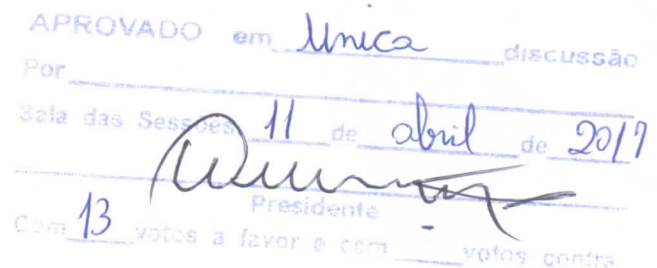 APROVADO em Unica discussão
Por
Sala das Sessões 11 de abril de 2017
Presidente
Com 13 votos a favor e com votos contra